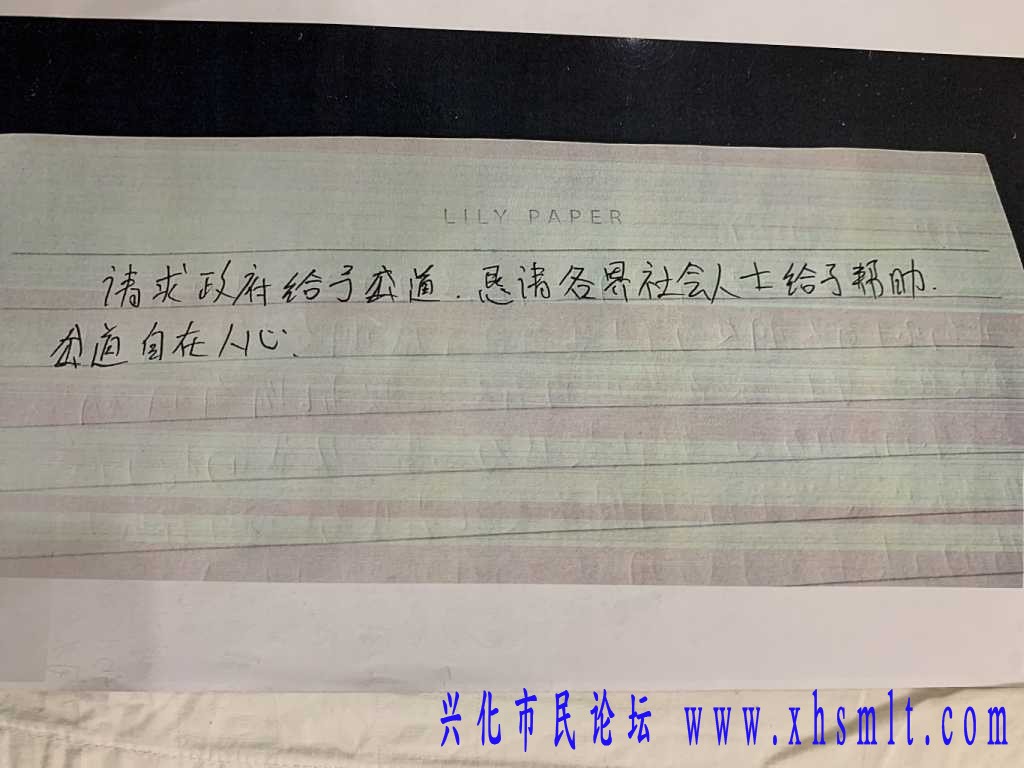 LILY PAPER
请求政府给予公道.恳请各界社会人士给予帮助.
公道自在人心.
兴化市民论坛 www.xhsmlt.com